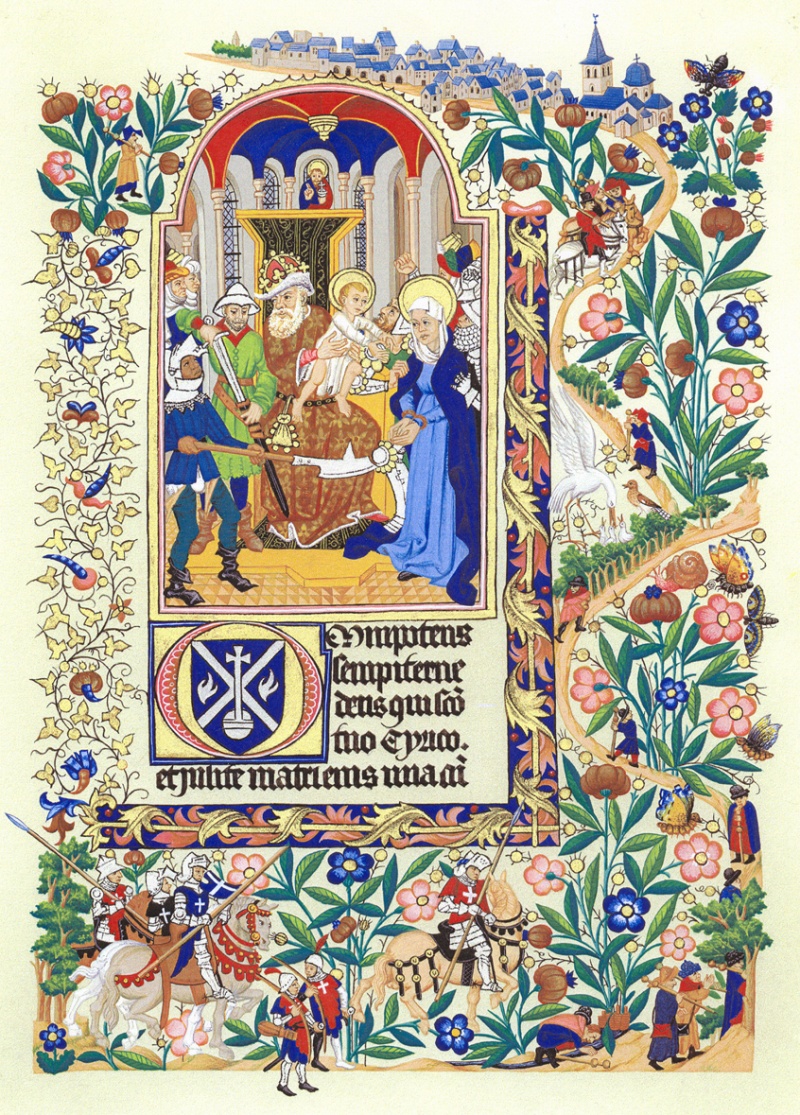 OMnipotens
sempiterne
deus qui scō
tuo Cyrico.
et Julite matri eius una cū